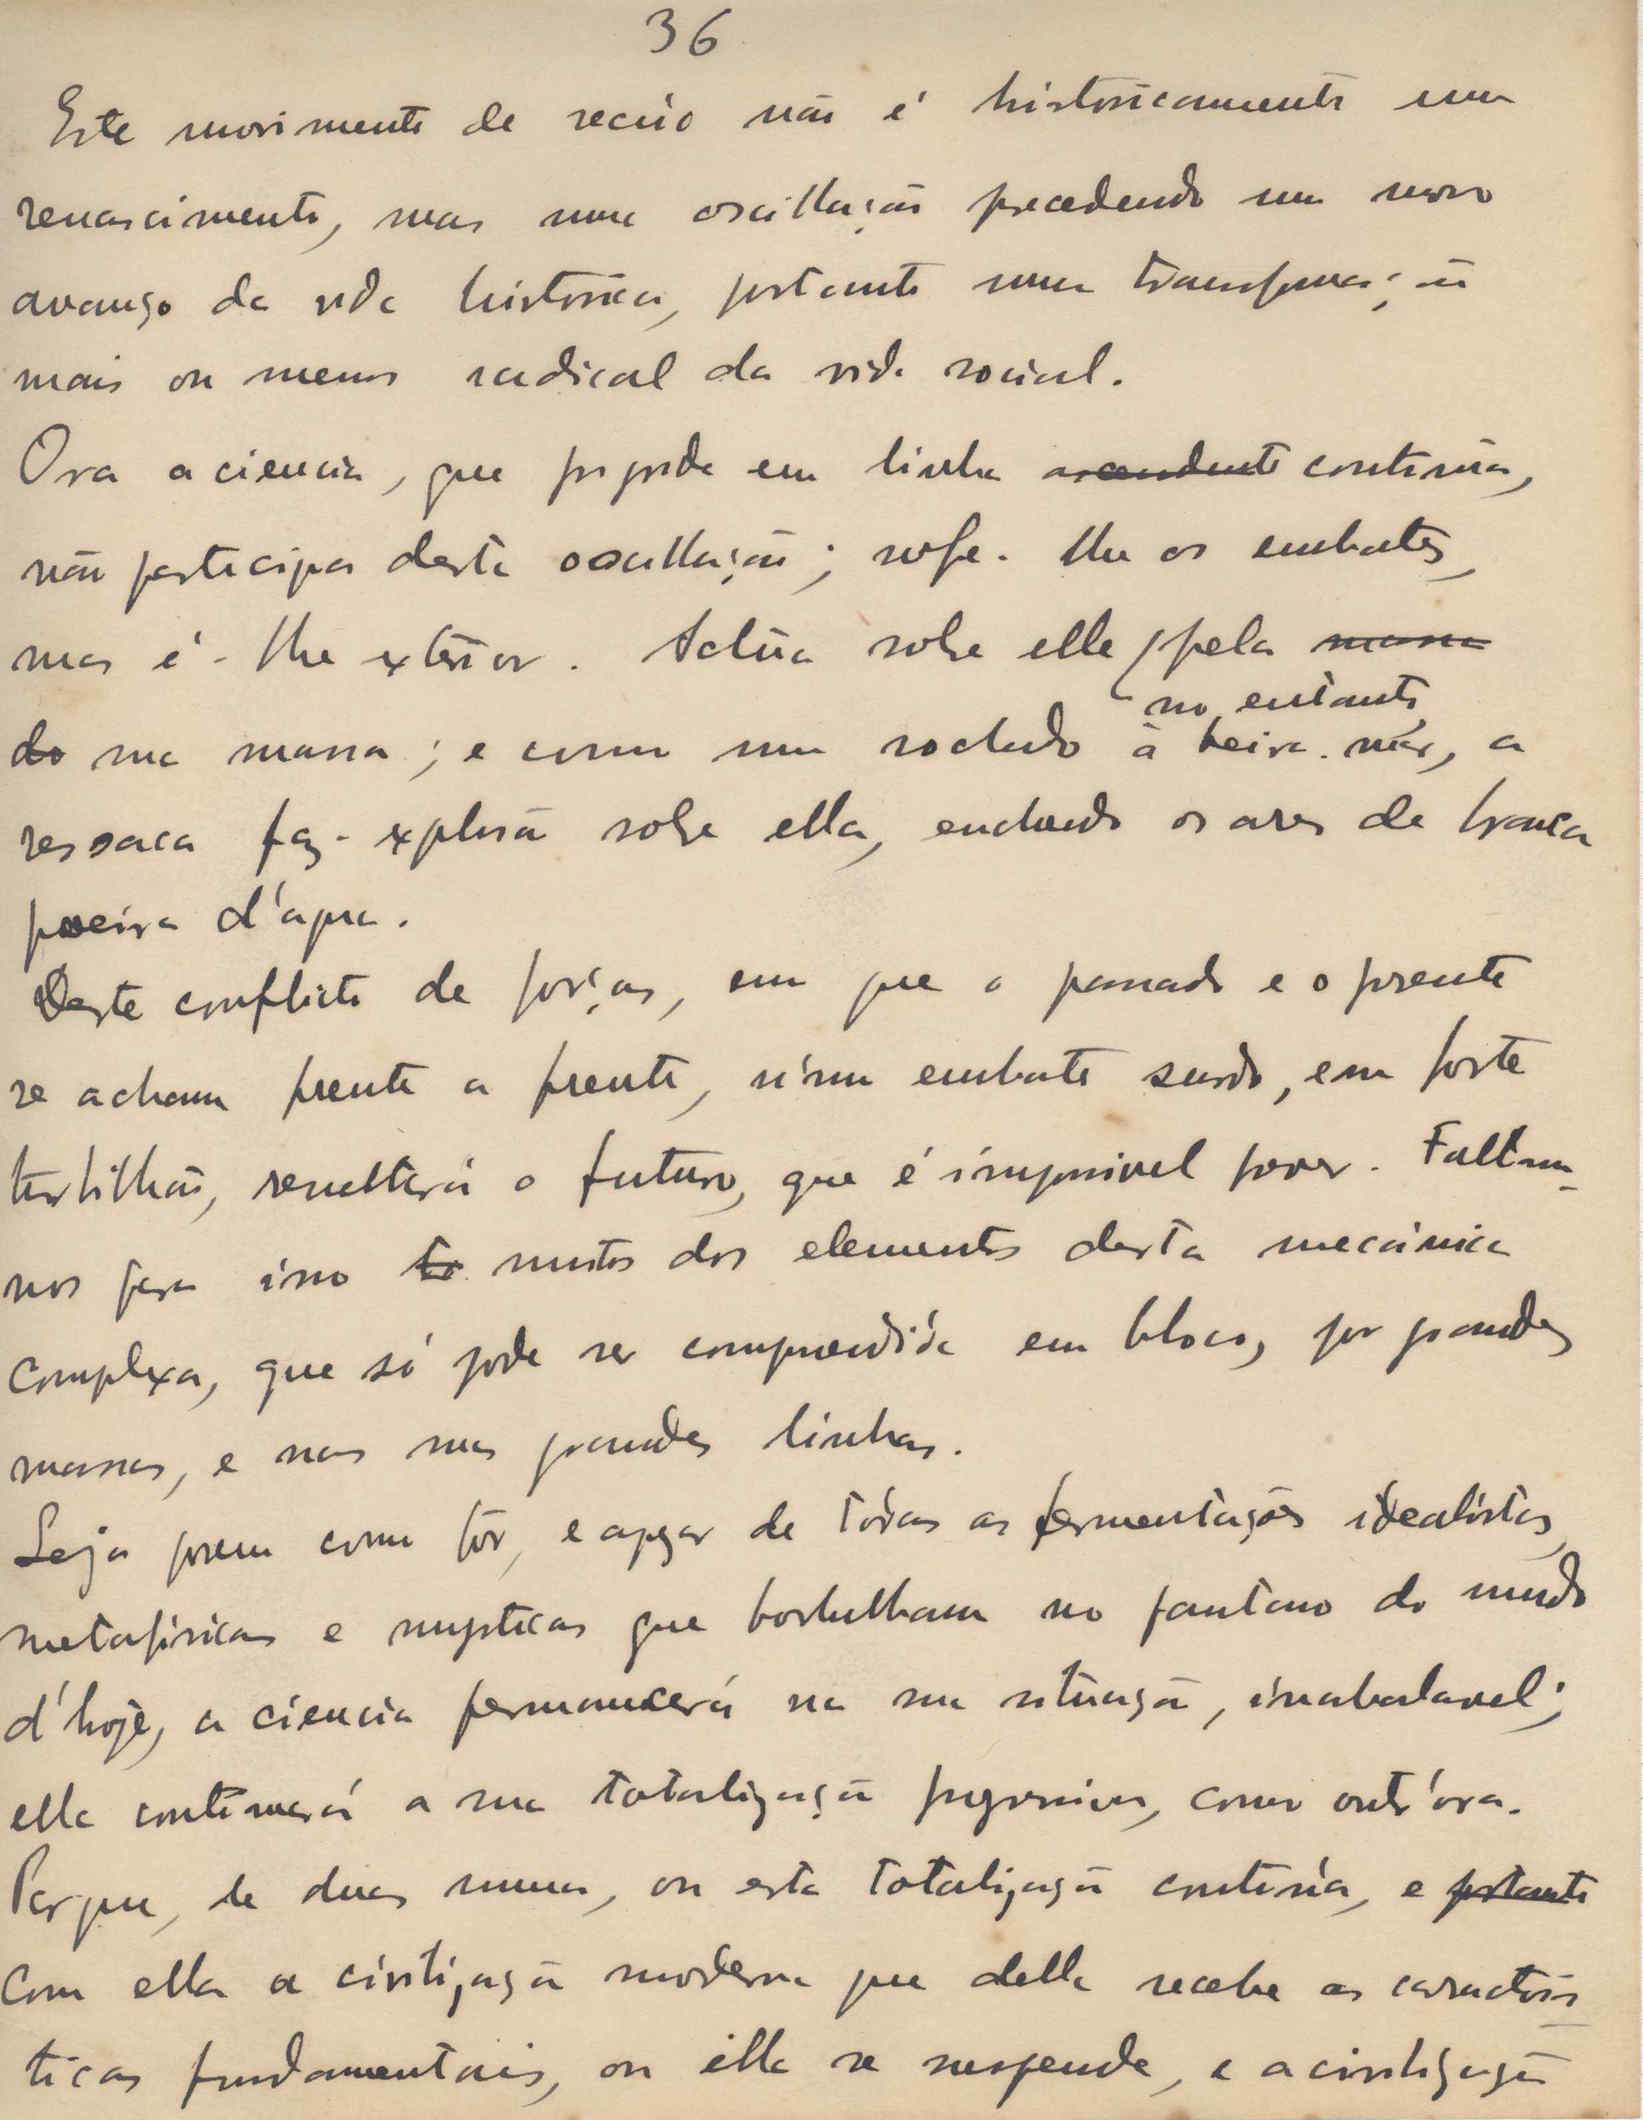 36
Este movimento de recúo não é historicamente um
renascimento, mas uma oscillação precedendo um novo
avanço da vida historica, portanto uma transformação
mais ou menos radical da vida social.
Ora a ciencia, que progride em linha ascendente continúa,
não participa desta oscillação; sofre-lhe os embates,
mas é-lhe exterior. Actúa sobre elle pela massa
do sua massa; e como um rochedo à beira-már, a
no entanto
ressaca faz explosão sobre ella, enchendo os ares de branca
poeira d'agua.
Deste conflicto de forças, em que o passado e o presente
se acham frente a frente, n'um embate surdo, em forte
turbilhão, resultará o futuro, que é impossivel prever. Faltam-
nos para isso muitos dos elementos desta mecánica
complexa, que só pode ser comprendida em bloco, por grandes
massas, e nas suas grandes linhas.
Seja porem como fôr, e apezar de tódas as fermentações idealistas,
metafisicas e mysticas que borbulham no pantano do mundo
d'hoje, a ciencia permanecerá na sua situação, inabalavel;
ella continuará a sua totalização progressiva, como outr'ora.
Porque, de duas uma, ou esta totalização continúa, e portanto
com ella a civilização moderna que della recebe as caracterís
ticas fundamentais, ou ella se suspende, e a civilização